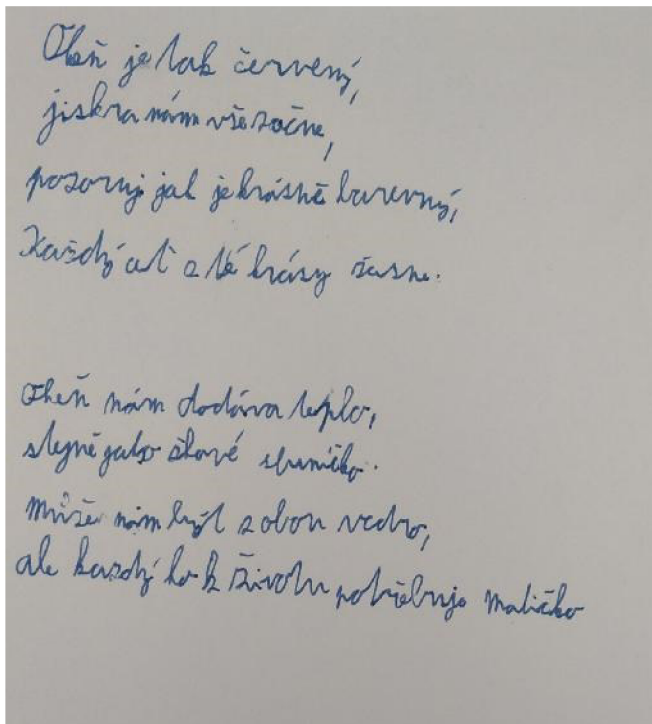 Oheň je tak červený,
jiskra nám vše začne,
pozoruj jak je krásně barevný,
Každý ať z té krásy žasne.
Oheň nám dodává teplo,
stejně jako žhavé sluníčko.
Může nám být z obou vedro,
ale každý ho k životu potřebuje maličko